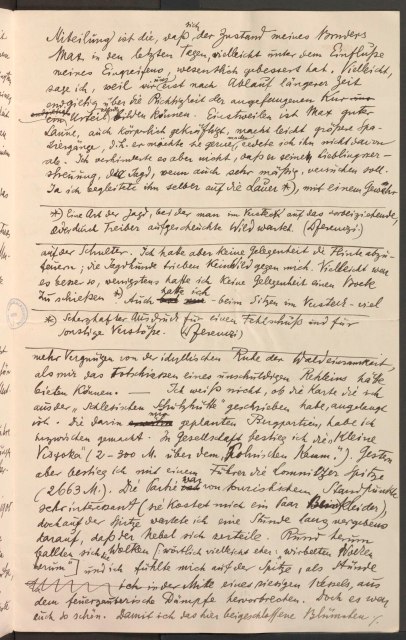 sich
Mitteilung ist die, daß, der Zustand meines Bruders
Max in den letzten Tagen, vielleicht unter dem Einflusse
meines Eingreifens, wesentlich gebessert hat. Vielleicht,
sage ich, weil wir uns erst nach Ablauf längerer Zeit
endgiltig über die Richtigkeit der angefangenen Kur
ein Urteil bilden können. Einstweilen ist Max guter
Laune, auch körperlich gekräftigt, macht leicht größere Spa-
ziergänge, d.h. er möchte sie gerne, redete ich ihm nicht davon
ab. Ich verhinderte es aber nicht, daß er seiner Lieblingszer-
streuung, der Jagd, wenn auch sehr mäßig, nachgehen soll.
Ja ich begleitete ihn selber auf die Lauer *), mit einem Gewehr
*) Eine Art der Jagd, bei der man im Versteck auf das vorbeiziehende,
oder durch Treiber aufgescheuchte Wild wartet. (Ferenczi).
auf der Schulter. Ich habe aber keine Gelegenheit die Flinte abzu-
feuern; die Jagdhunde trieben kein Wild gegen mich. Vielleicht war
es besser so, wenigstens hatte ich keine Gelegenheit einen Bock
zu schießen *). Auch hatte ich - beim Sitzen im Versteck - viel
*) Scherzhafter Ausdruck für einen Fehlschuß und für
sonstige Verstöße. (Ferenczi)
mehr Vergnügen von der idyllischen Ruhe der Waldeinsamkeit,
als mir das Totschießen eines unschuldigen Rehleins hätte
bieten können. — Ich weiß nicht, ob die Karte die ich
aus der „Schlesischen Schutzhütte“ geschrieben habe, angelangt
ist. Die darin geplanten Bergpartien, habe ich
inzwischen gemacht. In Gesellschaft bestieg ich die „Kleine
Visoka“ (2-300 M. über dem „Polnischen Kamm.“). Gestern
aber bestieg ich mit einem Führer die Lomnitzer Spitze
(2663 M.). Die Partie war von touristischem Standpunkte
sehr interessant (sie kostet mich ein Paar Kleider)
doch auf der Spitze wartete ich eine Stunde lang vergebens
darauf, daß der Nebel sich verteile. Rund herum
ballten sich Wolken [wörtlich vielleicht eher: wirbelten Wolken
herum“] und ich fühlte mich auf der Spitze, als stünde
ich in der Mitte eines riesigen Kessels, aus
dem feuergebärende Dämpfe hervorbrechen. Doch es war
auch so schön. Damit ich das hier beigeschlossene Blümchen